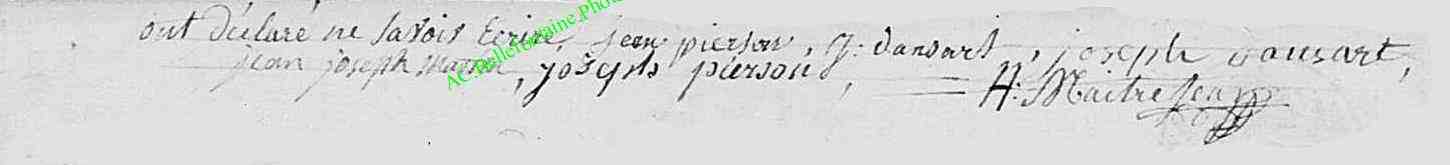 ont déclaré ne savoir Ecrire, jean pierson, J: dansart, joseph dansart,
jean joseph, joseph pierson, H: Maitrejean
AC Bellefontaine.Photo